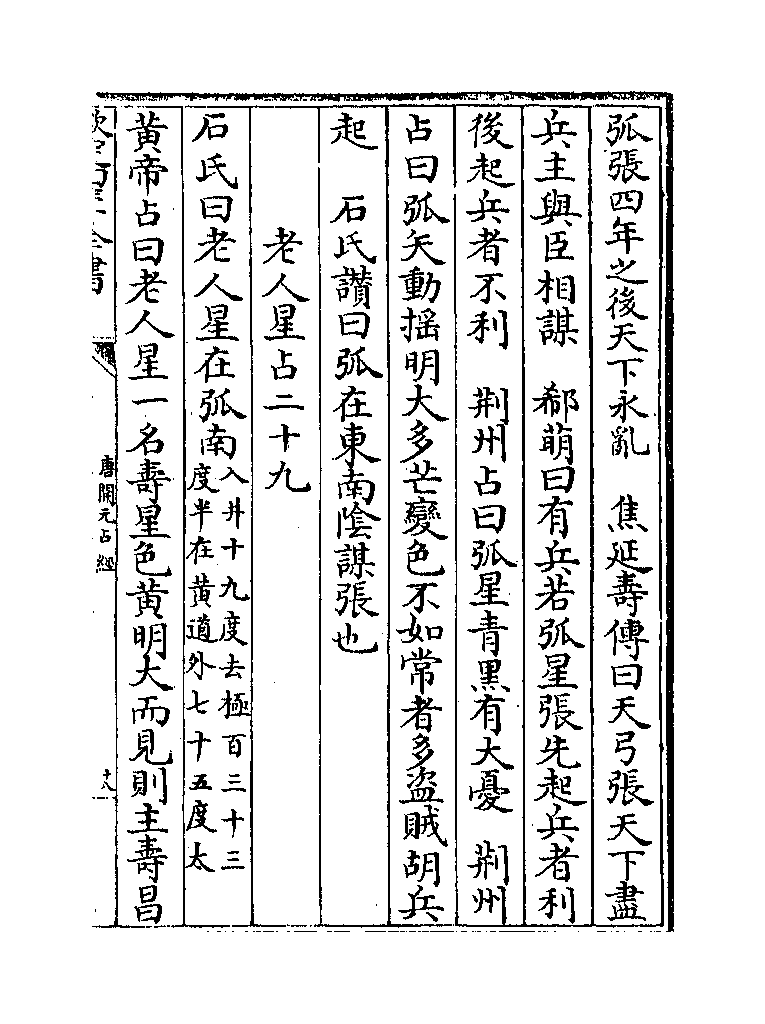 弧張四年之後天下永亂　焦延壽傳曰天弓張天下盡
兵主與臣相謀　郗萌曰有兵若弧星張先起兵者利
後起兵者不利　荆州占曰弧星青黑有大憂　荆州
占曰弧矢動揺明大多芒變色不如常者多盜賊胡兵
起　石氏讃曰弧在東南陰謀張也
老人星占二十九
石氏曰老人星在弧南入井十九度去極百三十三度半在黄道外七十五度太
黄帝占曰老人星一名壽星色黄明大而見則主壽昌
唐開元占經
十八